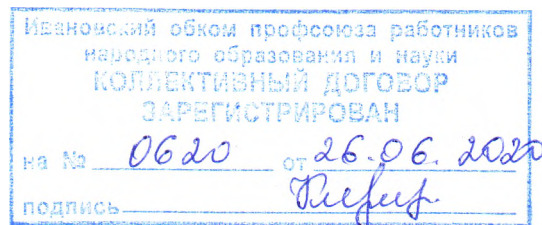 Ивановский обком профсоюза работников
народного образования и науки
КОЛЛЕКТИВНЫЙ ДОГОВОР
ЗАРЕГИСТРИРОВАН
на № 0620 от 26.06.2020
подпись